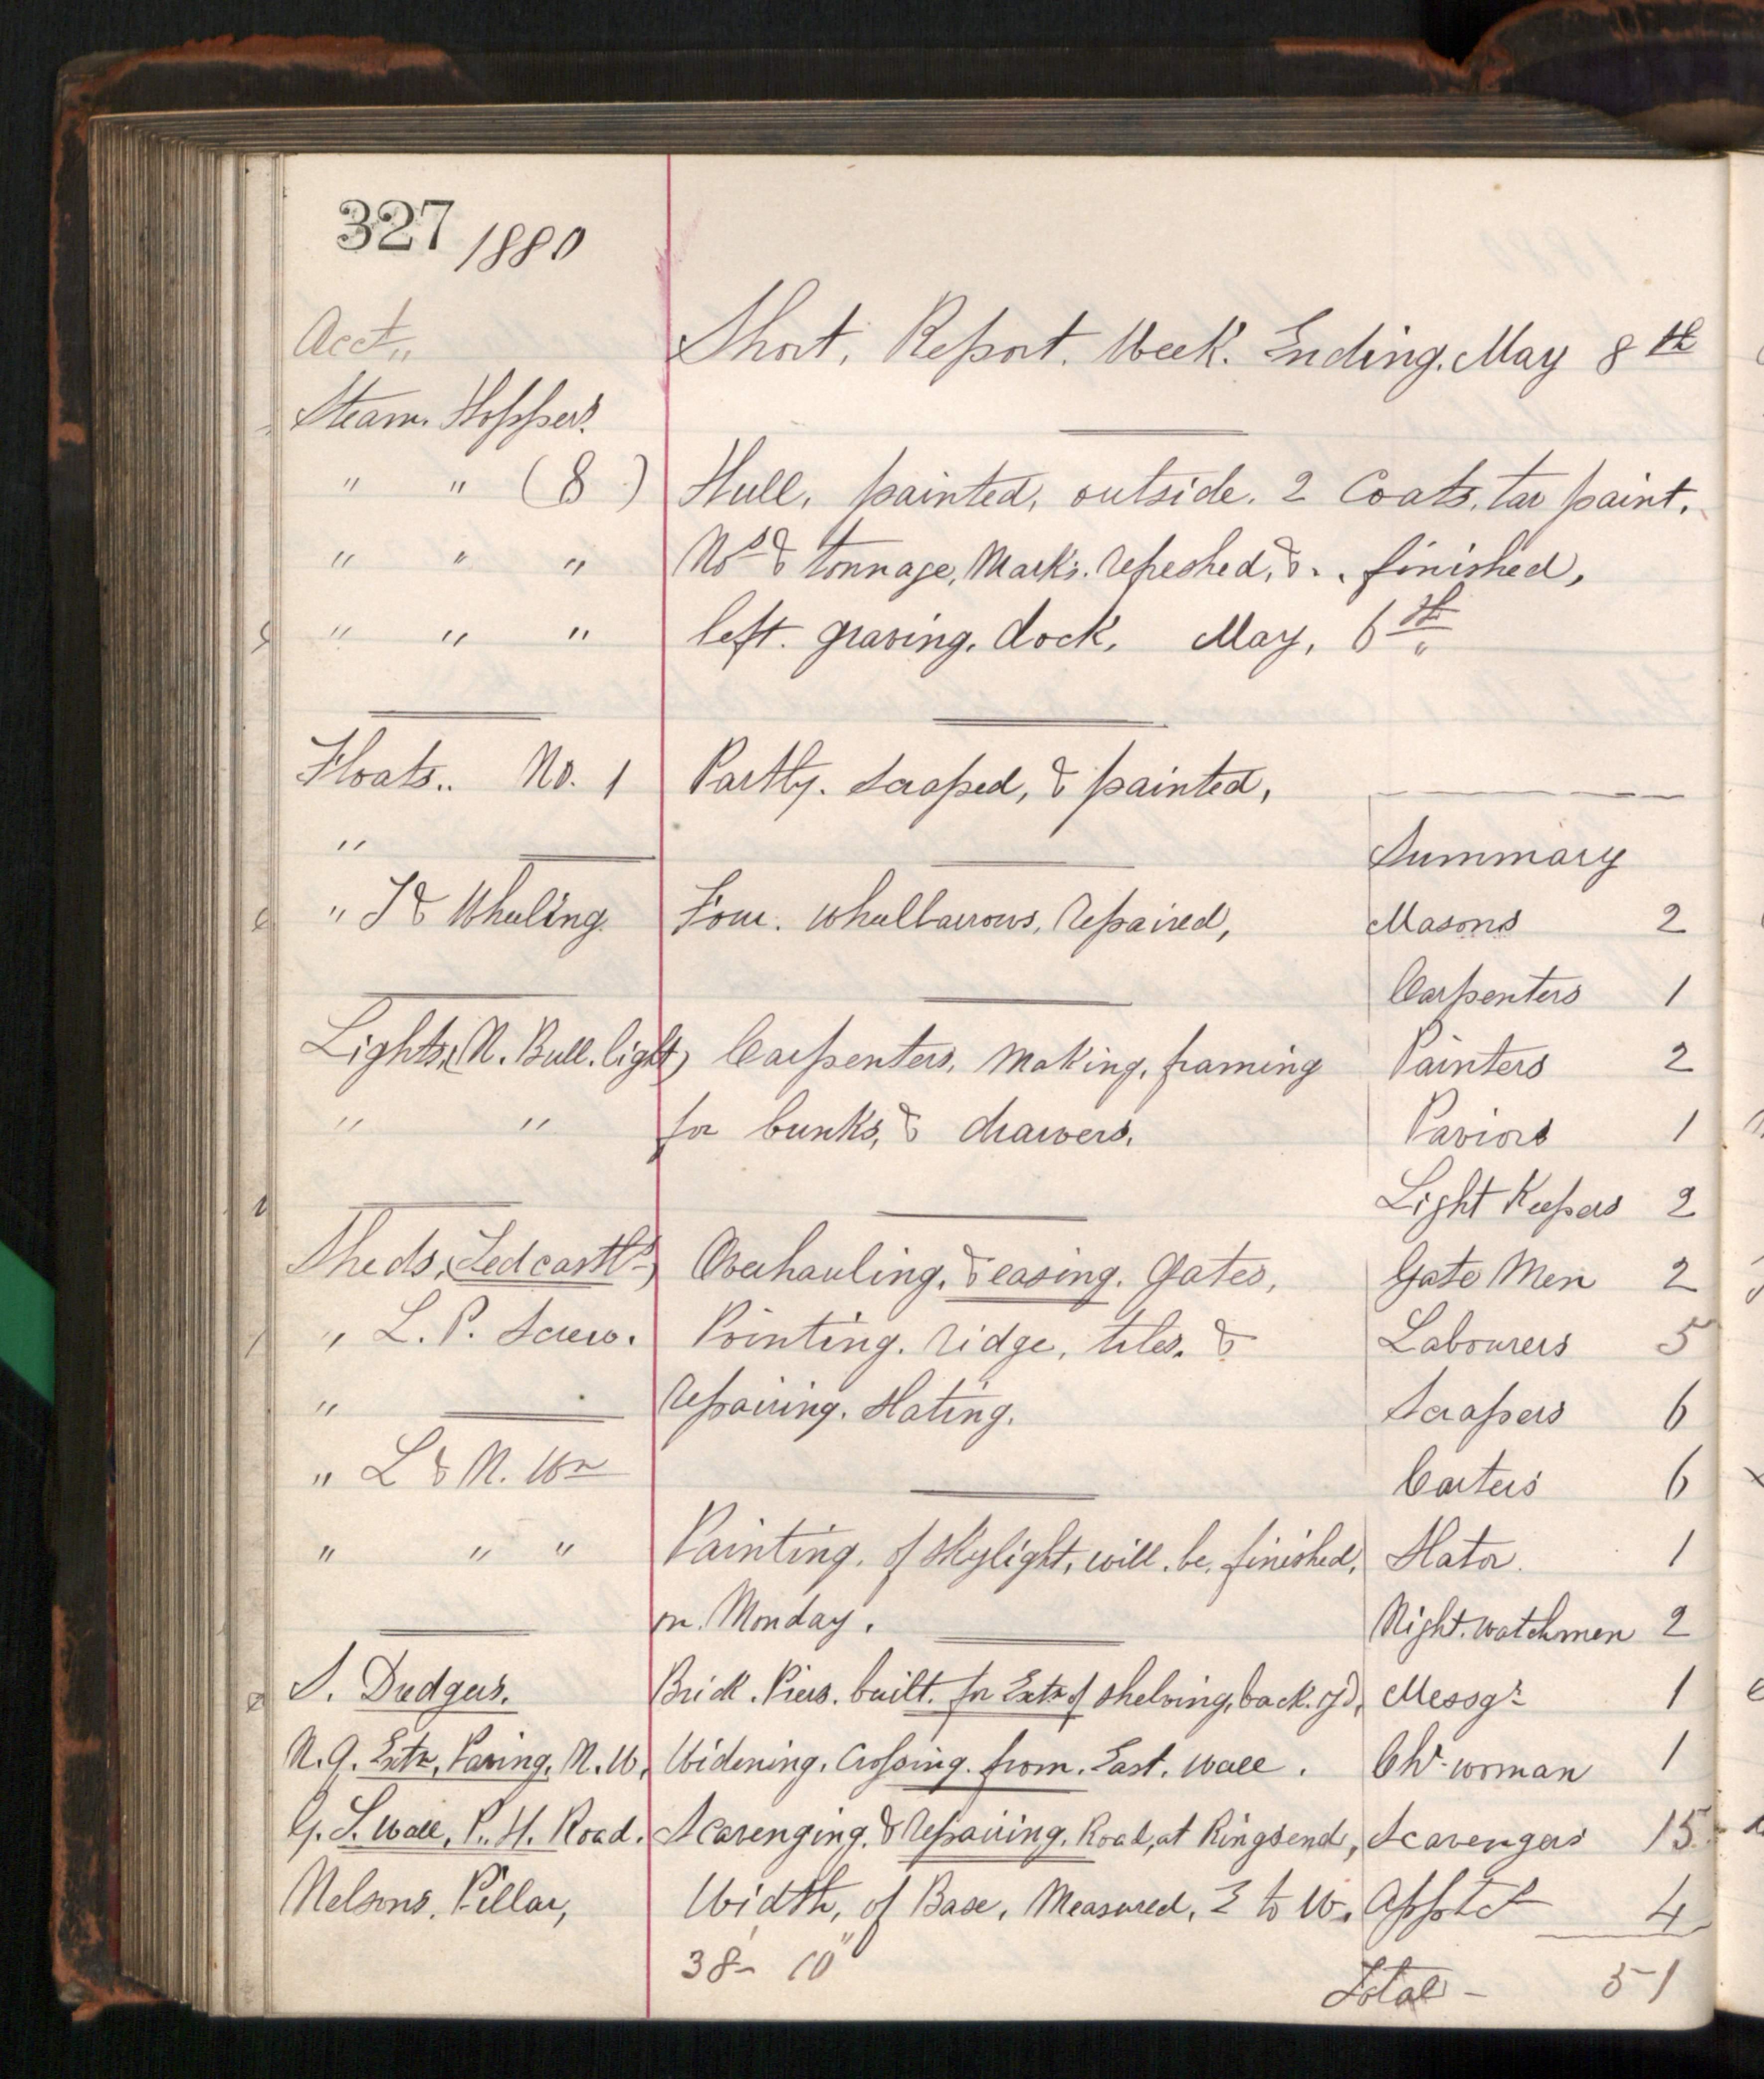 327/1880
Acct,, Short. Report. Week. Ending. May 8th
Steam. Hoppers.
" " (8) Hull, painted, outside. 2 Coats, tar paint.
" " " Nos & tonnage, Marks. refreshed, &.. finished,
" " " left. graving. dock, May, 6th
Floats.. No. 1 Partly. scraped, & painted,
"
Summary
" I & Wheling. Four. wheelbarrows, repaired, Masons 2
Carpenters 1
Lights, (N. Bull. light) Carpenters, making, framing Painters 2
" " for bunks, & drawers. Paviors 1
Light Keepers 2
Sheds, Tedcastls) Overhauling, & easing. Gates, Gate Men 2
" L. P. Screw. Pointing. ridge, tiles. & Labourers 5
" repairing. slating. Scrapers 6
" L & N. Wn Carters 6
" " " Painting. of skylight, will. be. finished, Slater. 1
on. Monday. Night. watchmen 2
S. Dredgers. Brick. Piers. built. for Extn of shelving, back. yd, Messgr 1
N.Q. Extn, Paving. N.W, Widening. Crossing. from. East. wall. Chr. woman 1
G. S. wall, P.. H. Road. Scavenging. & repairing. Road, at Ringsend, Scavengers 15
Nelsons. Pillar, Width, of Base, Measured, E to W. 4
38' - 10" Total - 51